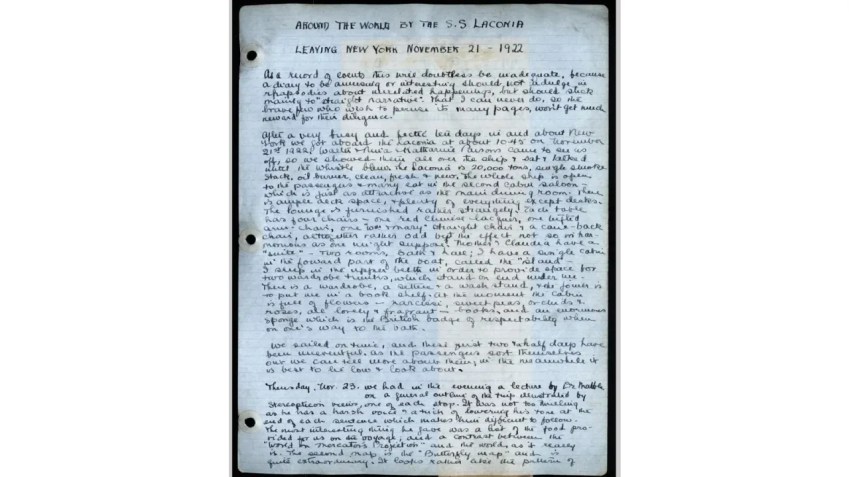 AROUND THE WORLD BY THE S.S. LACONIA
LEAVING NEW YORK NOVEMBER 21 - 1922
As a record of events this will doubtless be inadequate, because
a diary to be amusing or interesting should not indulge in
rhapsodies about unrelated happenings, but should stick
mainly to "straight narrative". That I can never do, so the
brave few who wish to peruse its many pages, won't get much
reward for their diligence.
After a very busy and hectic ten days in and about New
York we got aboard the Laconia at about 10.45 on November
21st 1922. Katharine Parsons came to see us
off, so we showed them all over the ship & sat & talked
until the whistle blew. The Laconia is 20,000 tons, single smoke
stack, oil burner, clean, fresh & new. The whole ship is open
to the passengers & many eat in the second cabin saloon -
which is just as attractive as the main dining room. There
is ample deck space, & plenty of everything except desks.
The lounge is furnished rather strangely. Each table
has four chairs - one red Chinese lacquer, one tufted
arm-chair, one "Wm & Mary" straight chair & a cane-back
chair, altogether rather odd but the effect not so in har-
monious as one might suppose. Mother & Claudia have a
"suite" - two rooms, bath & hall; I have a single cabin
in the forward part of the boat, called the "island".
I sleep in the upper berth in order to provide space for
two wardrobe trunks, which stand on end under me.
There is a wardrobe, a settee & a wash stand, & the joiner is
to put me in a book shelf. At the moment the cabin
is full of flowers - narcissi, sweet peas, orchids &
roses, all lovely & fragrant - books, and an enormous
sponge which is the British badge of respectability when
on one's way to the bath.
We sailed on time, and these first two & a half days have
been uneventful. As the passengers sort themselves
out we can tell more about them; in the meanwhile it
is best to lie low & look about.
Thursday. Nov. 23. We had in the evening a lecture by Dr.
on a general outline of the trip illustrated by
stereopticon views, one of each stop. It was not too thrilling
as he has a harsh voice & a trick of lowering his tone at the
end of each sentence which makes him difficult to follow.
The most interesting thing he gave was a list of the food pro-
vided for us on the voyage; and a contrast between the
"World on Mercator's Projection" and the world as it really
is. The second map is the "Butterfly map" and is
quite extraordinary. It looks rather like the pattern of